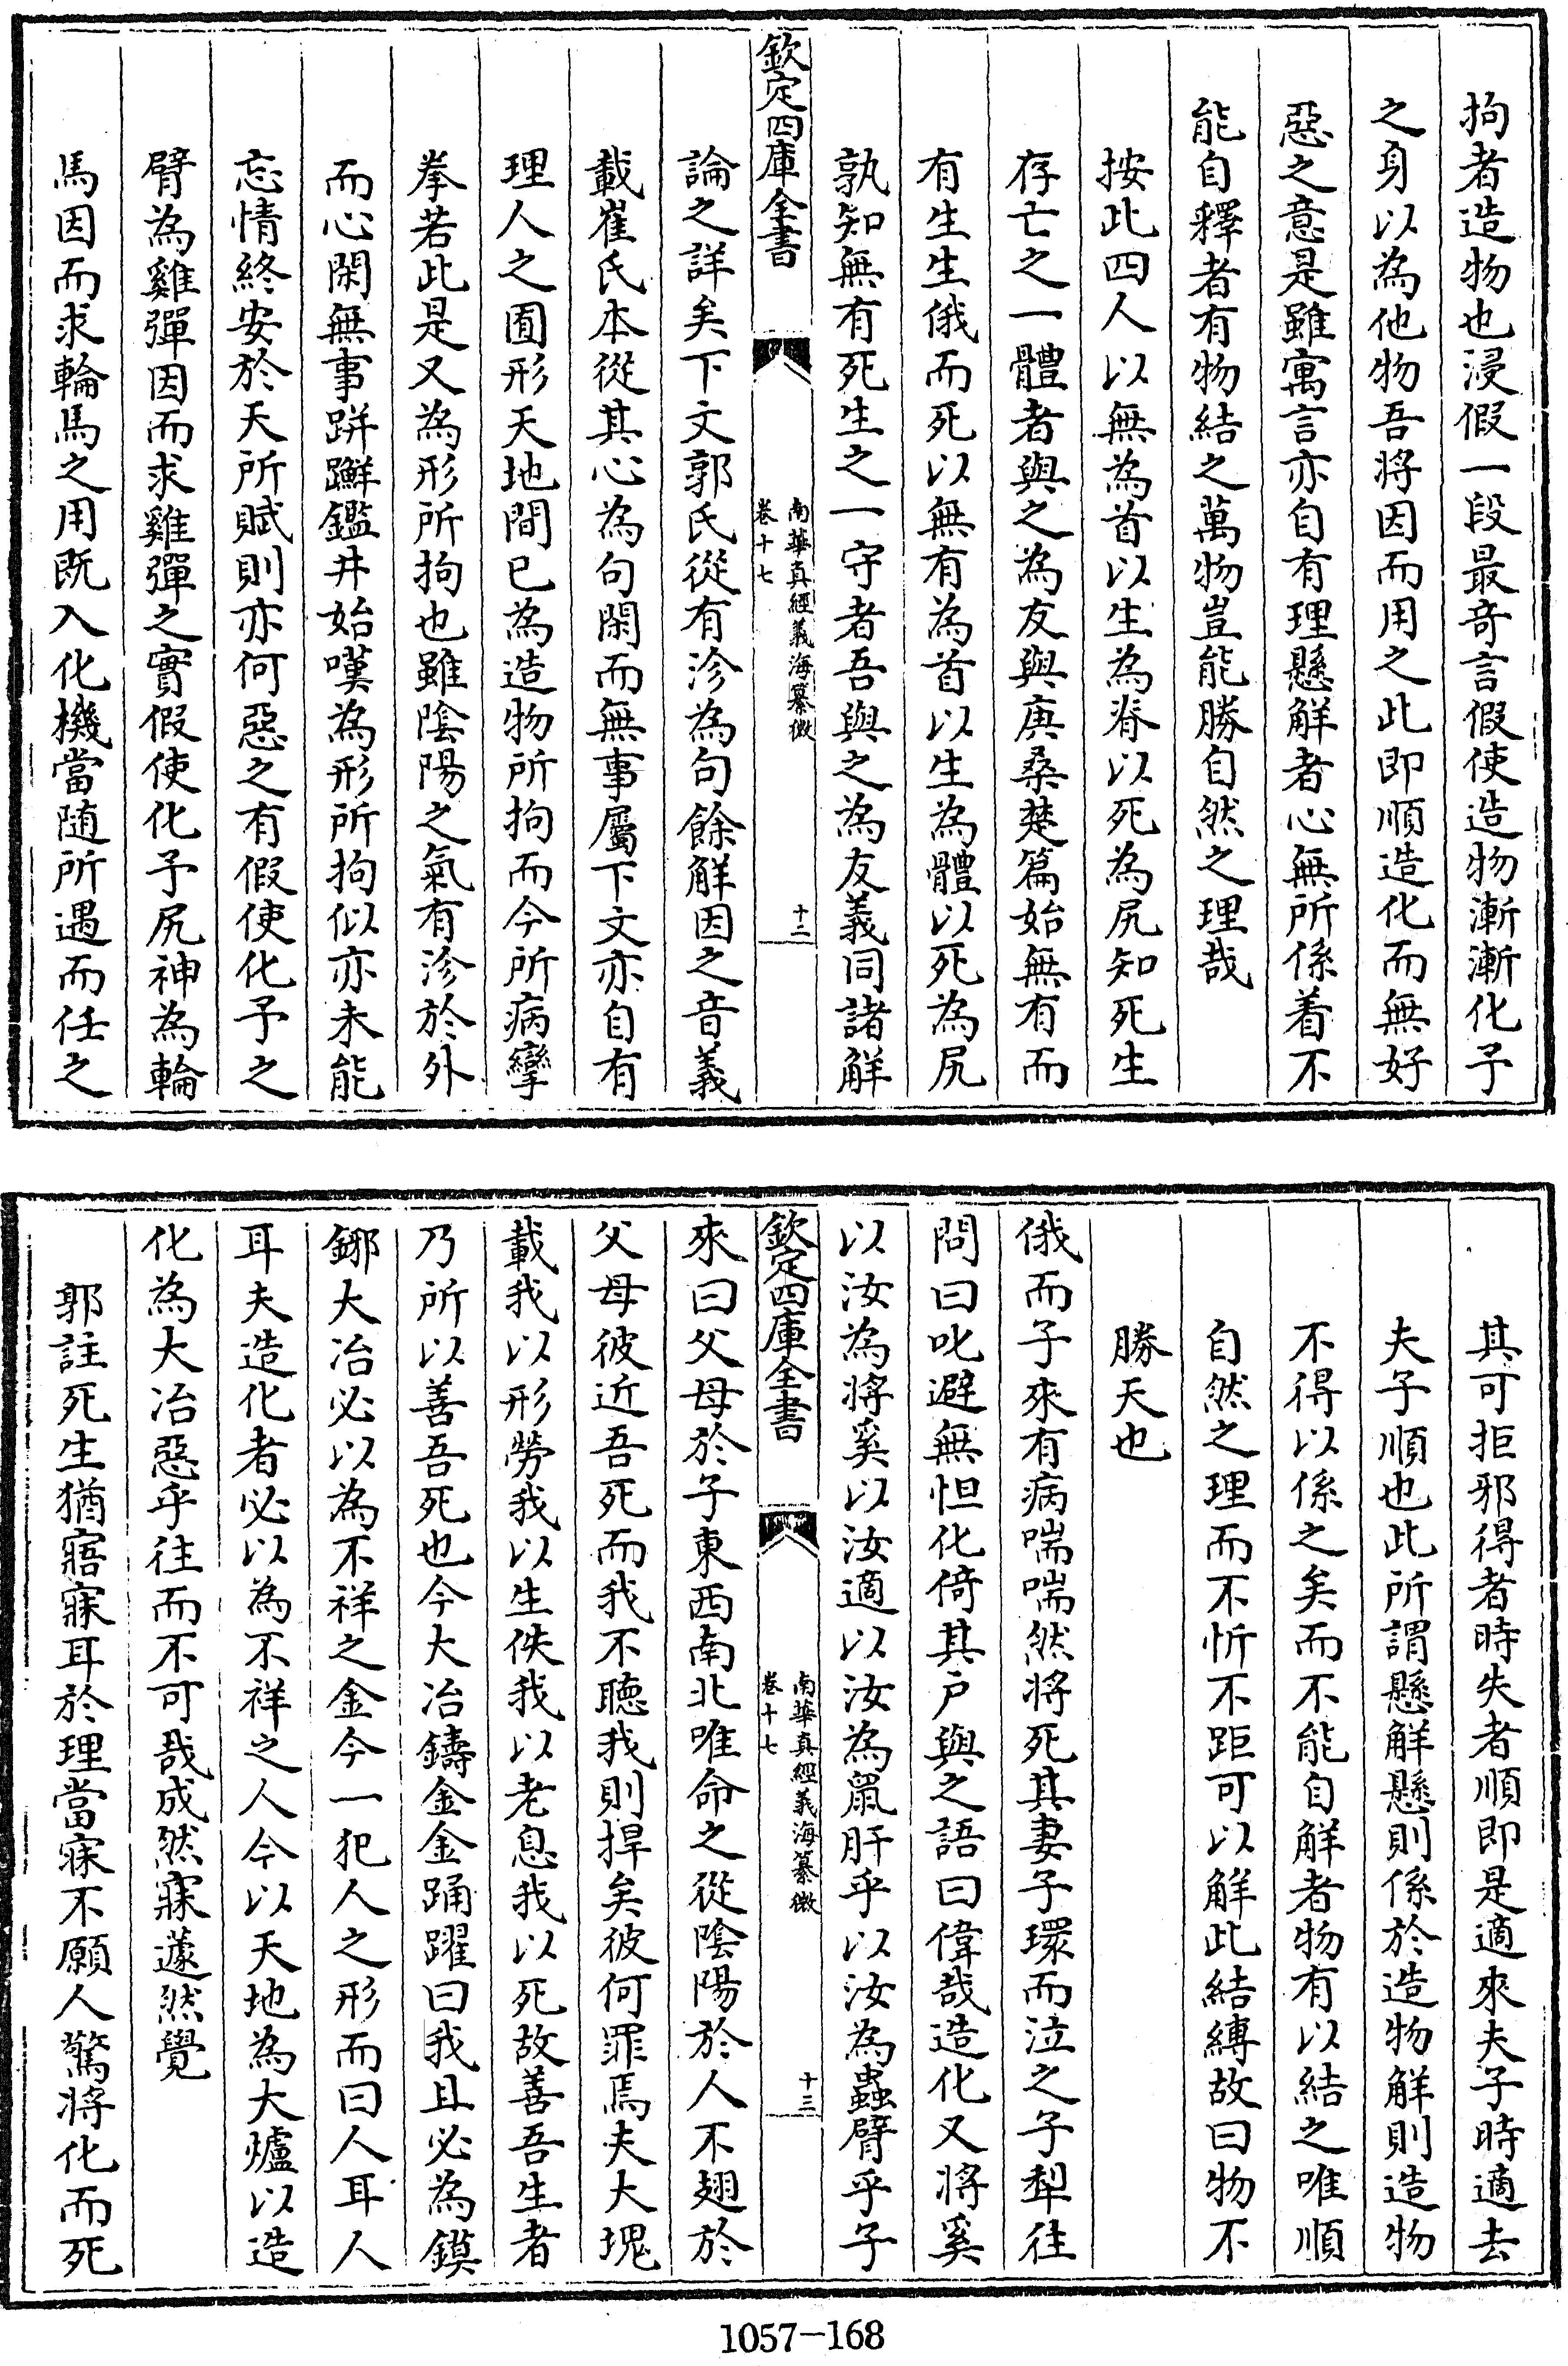 拘者造物也浸假一段最竒言假使造物漸漸化予
之身以為他物吾將因而用之此即順造化而無好
惡之意是雖寓言亦自有理懸解者心無所係着不
能自釋者有物結之萬物豈能勝自然之理哉
按此四人以無為首以生為脊以死為尻知死生
存亡之一體者與之為友與庚桑楚篇始無有而
有生生俄而死以無有為首以生為體以死為尻
孰知無有死生之一守者吾與之為友義同諸解
欽定四庫全書
南華真經義海纂微
卷十七
十二
論之詳矣下文郭氏從有沴為句餘解因之音義
載崔氏本從其心為句閑而無事屬下文亦自有
理人之囿形天地間已為造物所拘而今所病攣
拳若此是又為形所拘也雖陰陽之氣有沴於外
而心閑無事跰𨇤鑑井始嘆為形所拘似亦未能
忘情終安於天所賦則亦何惡之有假使化予之
臂為雞彈因而求雞彈之實假使化予尻神為輪
馬因而求輪馬之用既入化機當随所遇而任之
其可拒邪得者時失者順即是適來夫子時適去
夫子順也此所謂懸解懸則係於造物解則造物
不得以係之矣而不能自解者物有以結之唯順
自然之理而不忻不距可以解此結縛故曰物不
勝天也
俄而子來有病喘喘然將死其妻子環而泣之子犁往
問曰叱避無怛化倚其戶與之語曰偉哉造化又將奚
以汝為將奚以汝適以汝為鼠肝乎以汝為蟲臂乎子
欽定四庫全書
南華真經義海纂微
卷十七
十三
來曰父母於子東西南北唯命之從陰陽於人不翅於
父母彼近吾死而我不聽我則捍矣彼何罪焉夫大塊
載我以形勞我以生佚我以老息我以死故善吾生者
乃所以善吾死也今大冶鑄金金踊躍曰我且必為鏌
鋣大冶必以為不祥之金今一犯人之形而曰人耳人
耳夫造化者必以為不祥之人今以天地為大爐以造
化為大冶惡乎往而不可哉成然寐蘧然覺
郭註死生猶寤寐耳於理當寐不願人驚將化而死
1057-168